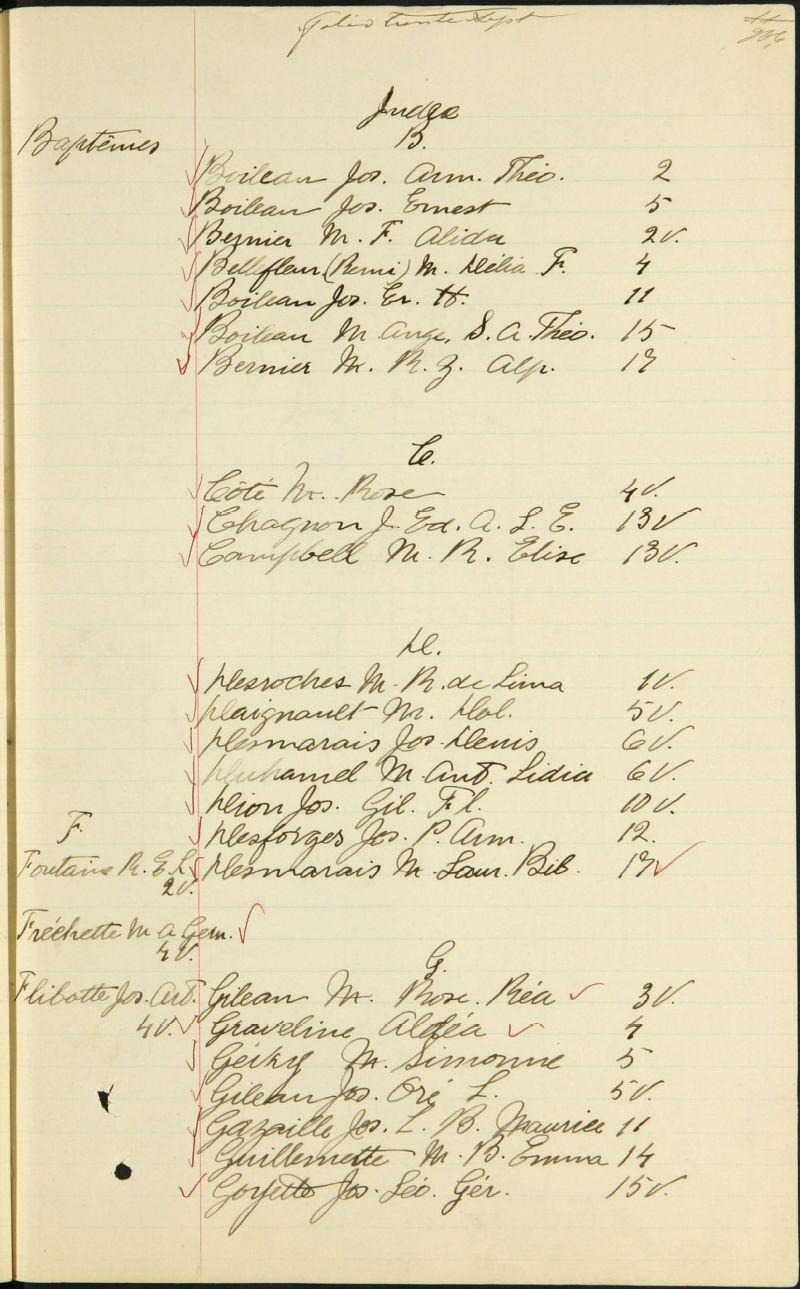 Folio trente Sept
Index
Baptêmes
B.
Boileau Jos. Arm. Théo. 2
Boileau Jos. Ernest 5
Bernier M. F. Alida 2v.
Bellefleur (Remi) M. Délia F. 4
Boileau Jos. Er. H. 11
Boileau M. Ange. S. A. Théo. 15
Bernier M. R. Z. Alp. 17
C.
Côté M. Rose 4v.
Chagnon J. Ed. A. L. E. 13v
Campbell M. R. Elise 13v.
D.
Desroches M. R. de Lima 1v.
Daignault M. Dol. 5v.
Desmarais Jos. Denis 6v.
Duhamel M. Ant. Lidia 6v.
Dion Jos. Gil. Fl. 10v.
Desforges Jos. P. Arm. 12.
Desmarais M. Laur. Bib. 17
F.
Fontaine R. E. L.
2v.
Fréchette M A Gem.
4v.
Flibotte Jos. Art.
4v.
G.
Gileau M. Rose. Réa 3v.
Graveline Aldéa 4
M. Simonne 5
Gileau Jos. Oré L. 5v.
Gazaille Jos. L. B. Maurice 11
Guillemette M. B. Emma 14
Goyette Jos. Léo. Gér. 15v.